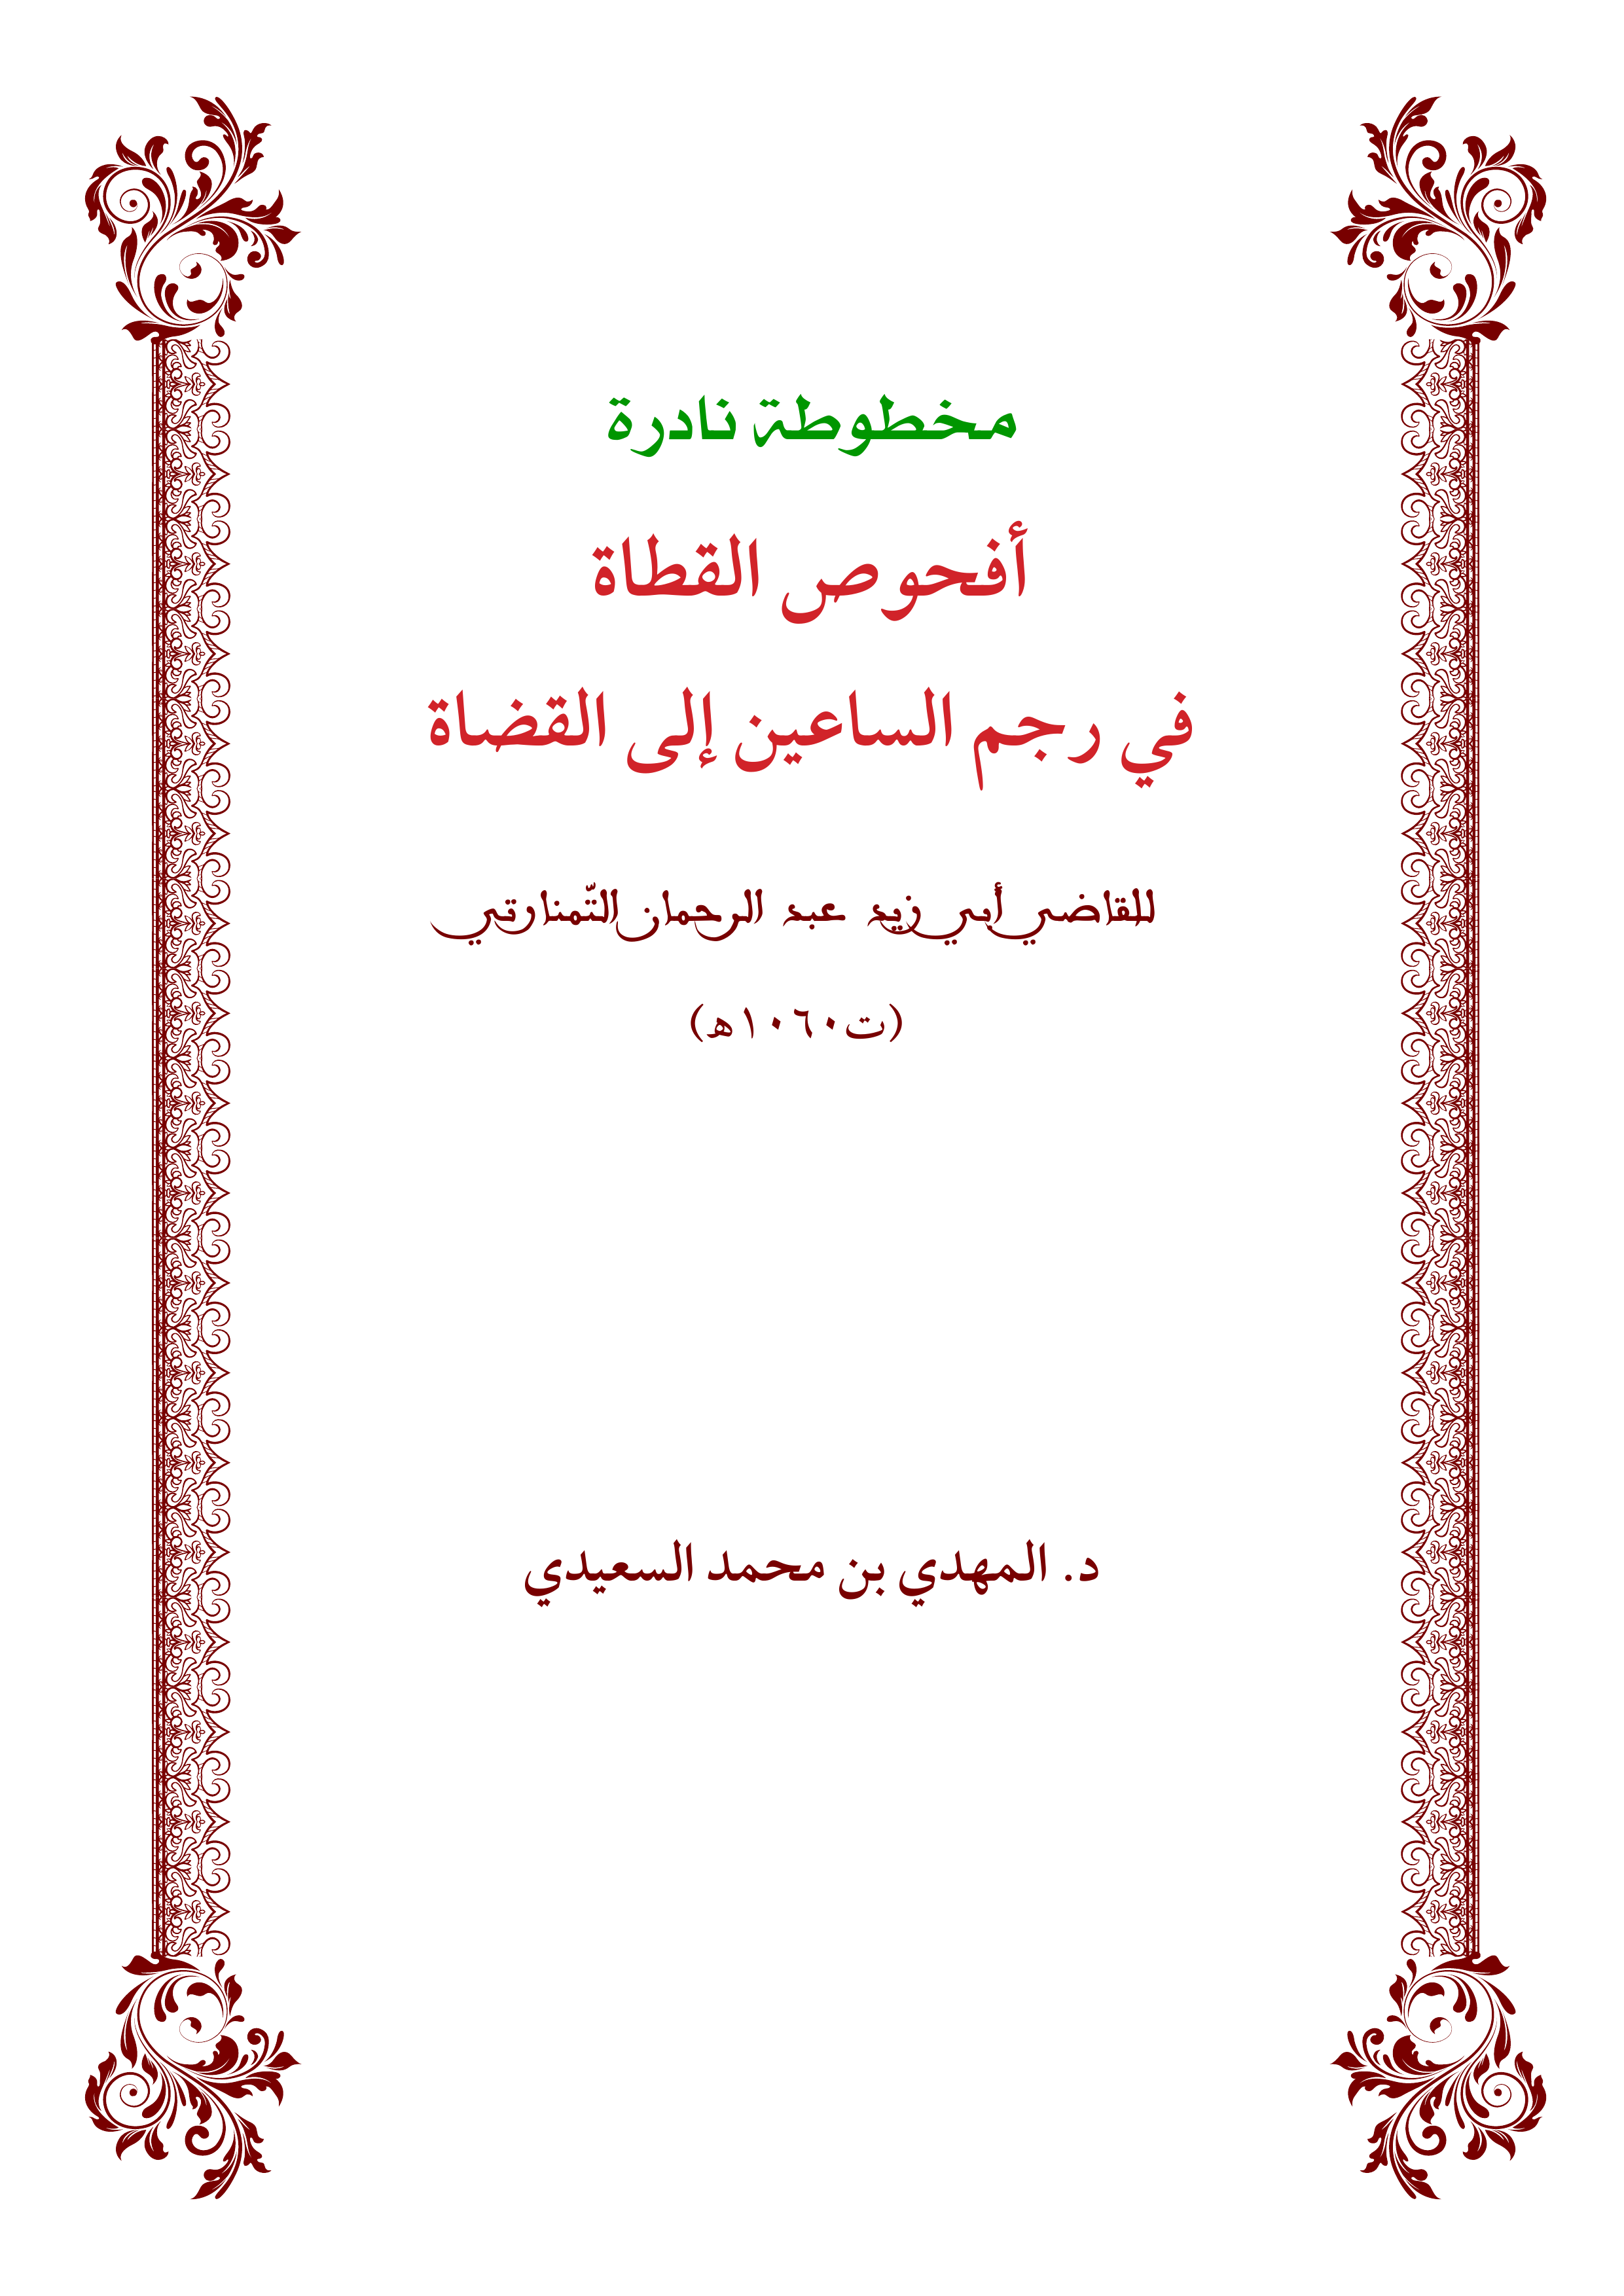 مخطوطة نادرة
أفحوص القطاة
في رجم الساعين إلى القضاة
للقاضي أبي زيد عبد الرحمان التّمنارتي
(ت١٠٦٠ه)
د. المهدي بن محمد السعيدي